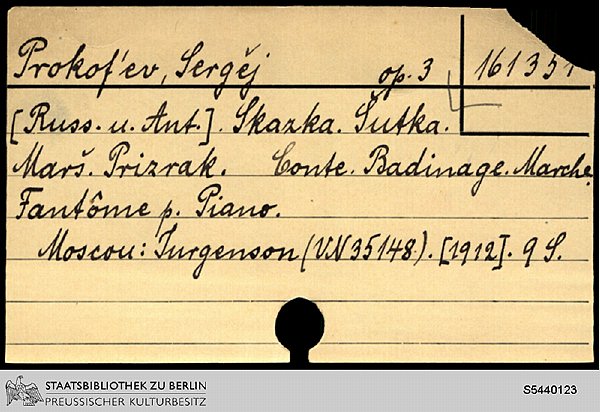 Prokof'ev, Sergěj op. 3 161351
[Russ. u. Ant.]. Skazka. Šutka.
Marš. Prizrak. Conte. Badinage. Marche.
Fantôme p. Piano.
Moscou: Jurgenson (VN 35148). [1912]. 9 S.
STAATSBIBLIOTHEK ZU BERLIN
PREUSSISCHER KULTURBESITZ
S5440123